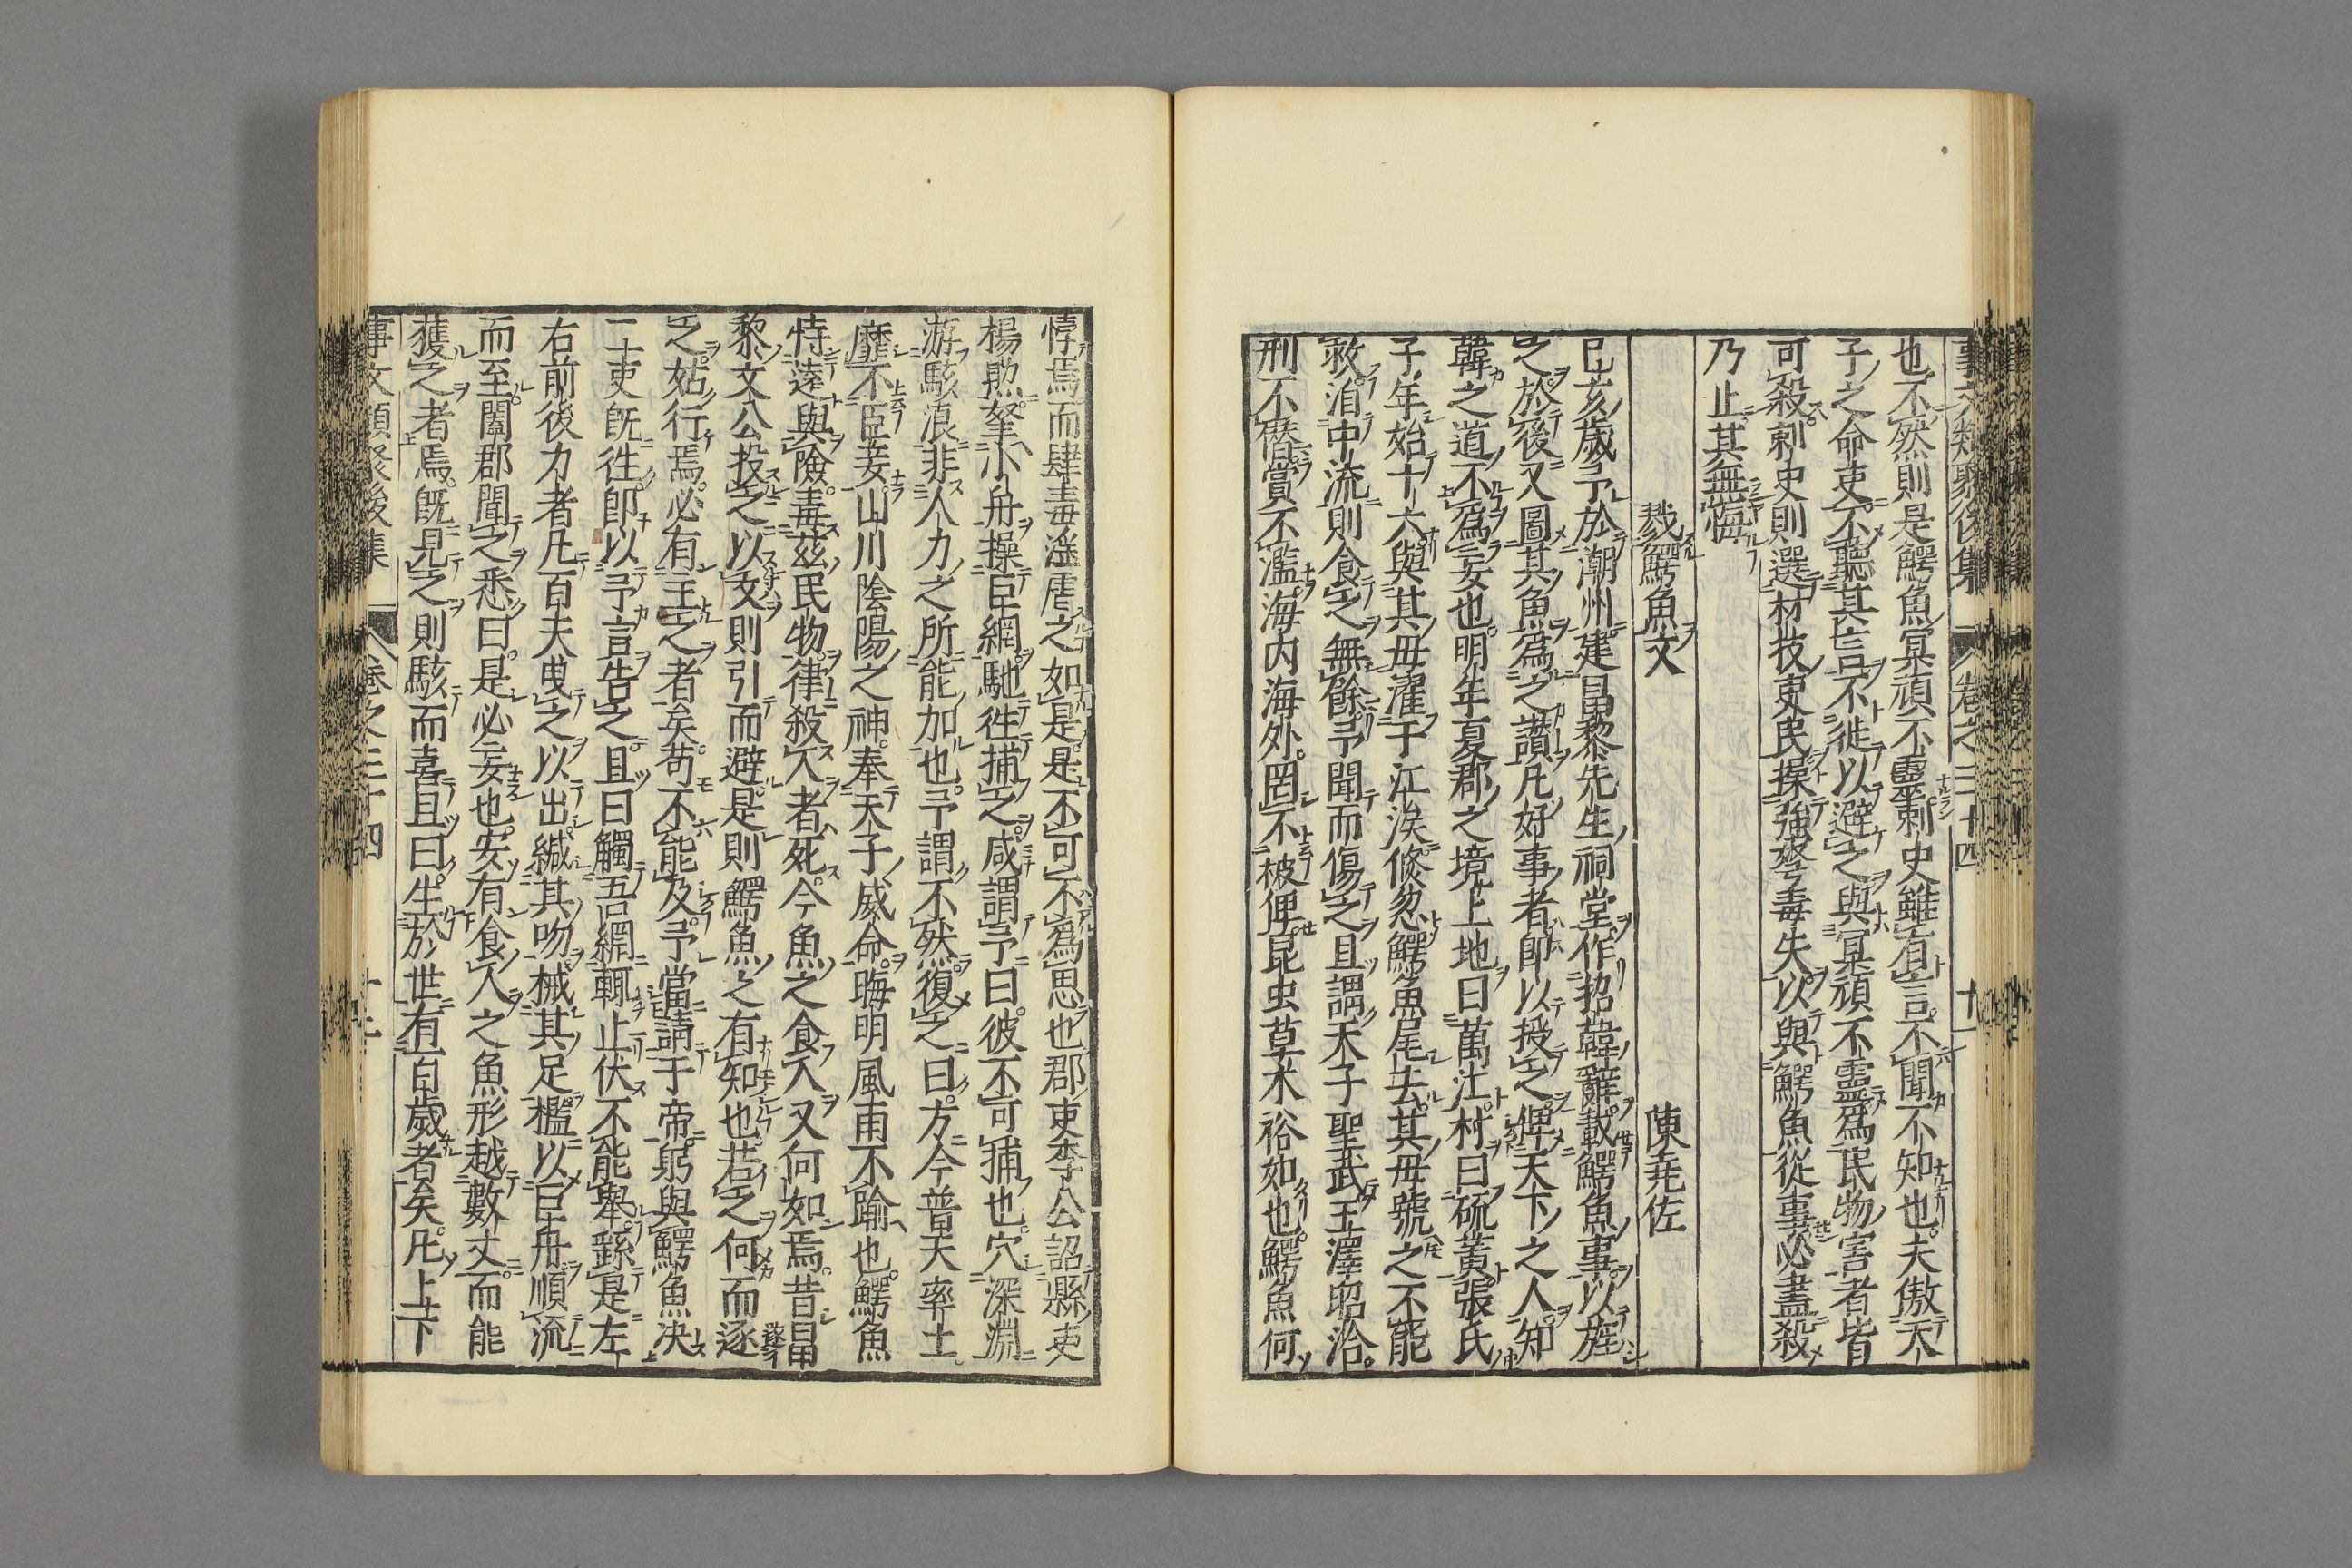 事文類聚後集 卷之三十四 十一
也不然則是鰐魚冥頑不靈刺史雖有言不聞不知也夫傲天
子之命吏不聽其言不徙以避之與冥頑不靈爲民物害者皆
可殺刺史則選材技吏民操強弩毒矢以與鰐魚從事必盡殺
乃止其無悔
戮鰐魚文 陳堯佐
己亥歲予於潮州建昌黎先生祠堂作招韓辭載鰐魚事以旌
之於後又圖其魚爲之讃凡好事者即以授之俾天下之人知
韓之道不爲妄也明年夏郡之境上地曰萬江村曰硫黃張氏
子年始十六與其母濯于江涘倐忽鰐魚尾去其母號之不能
救洎中流則食之無餘予聞而傷之且謂天子聖武王澤昭洽
刑不僭賞不濫海内海外罔不被俾昆虫草木裕如也鰐魚何
悖焉而肆毒滛虐之如是是不可不爲思也郡吏李公詔縣吏
楊勲拏小舟操巨網馳徃捕之咸謂予曰彼不可捕也穴深淵
游駭浪非人力之所能加也予謂不然復之曰方今普天率土
靡不臣妾山川陰陽之神奉天子威命晦明風雨不踰也鰐魚
恃遠與險毒茲民物律殺人者死今魚之食人又何如焉昔昌
黎文公投之以文則引而避是則鰐魚之有知也若之何而逐
之姑行焉必有主之者矣苟不能及予當請于帝躬與鰐魚决
二吏旣徃即以予言告之且曰觸吾網輒止伏不能舉繇是左
右前後力者凡百夫曵之以出緘其吻械其足檻以巨舟順流
而至闔郡聞之悉曰是必妄也安有食人之魚形越數丈而能
獲之者焉旣見之則駭而喜且曰生於世有百歲者矣凡上下
事文類聚後集 卷之三十四 十二